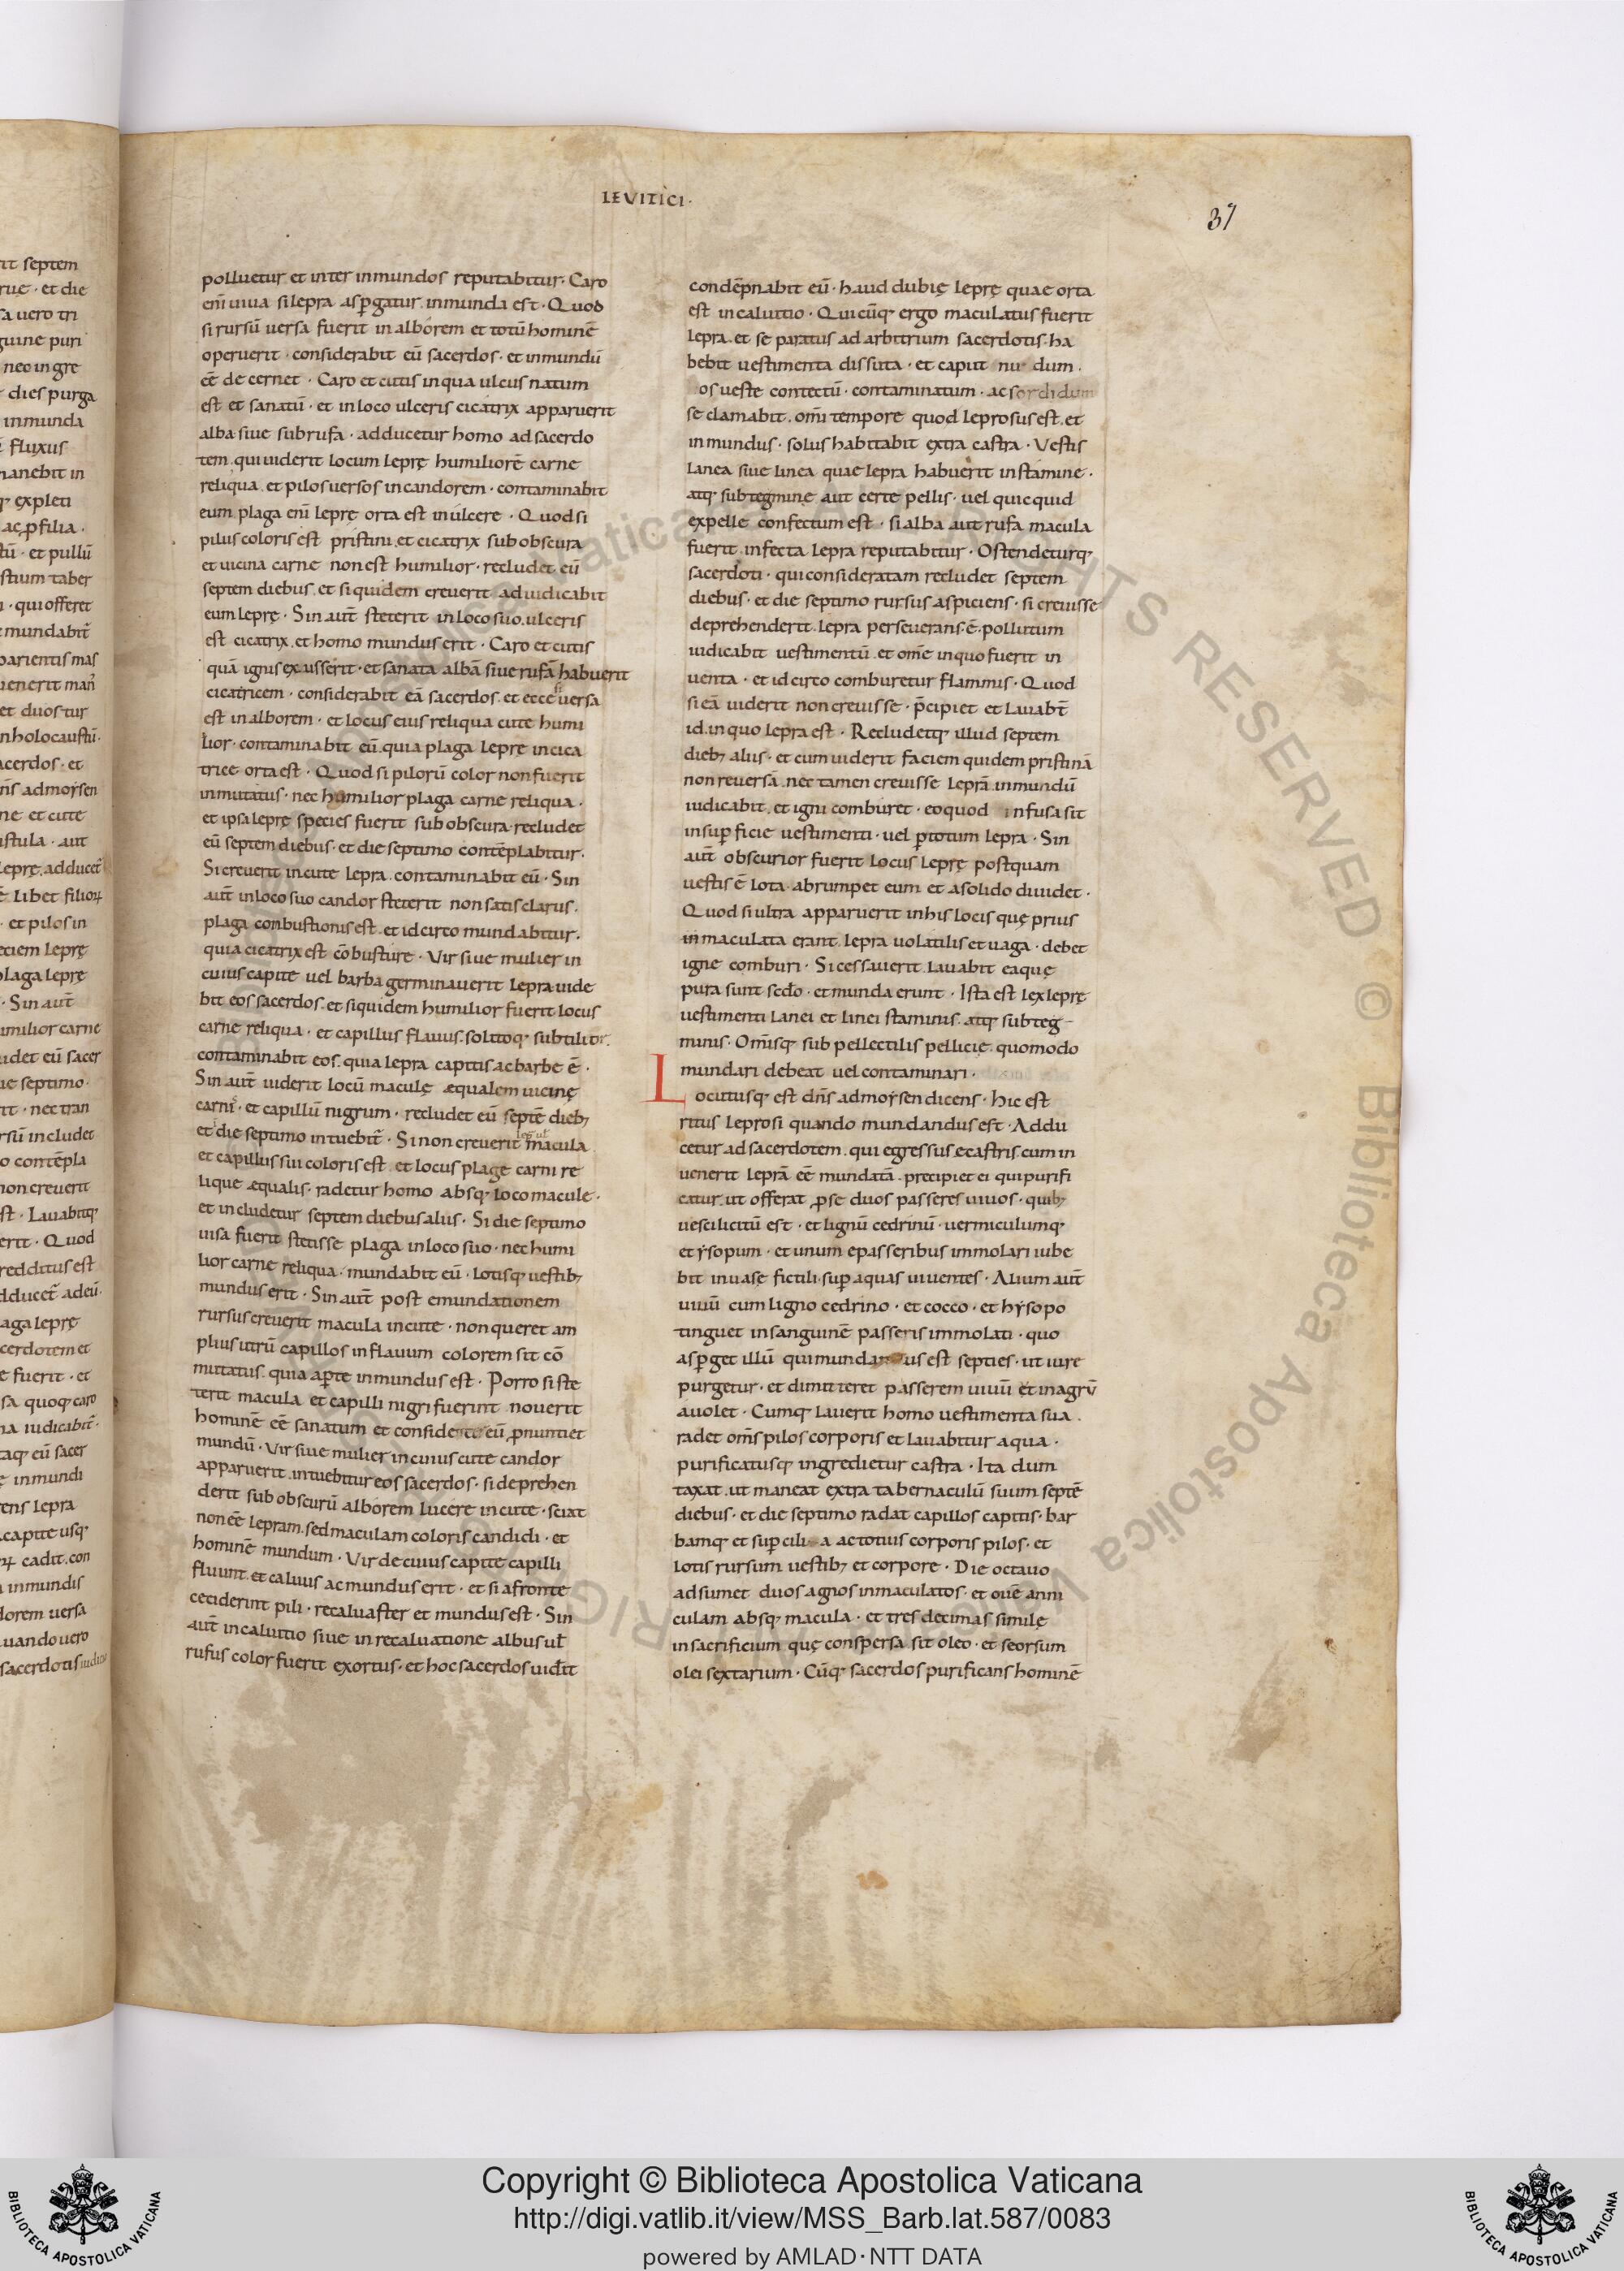 LEVITICI·
37
polluetur et inter inmundos reputabitur· Caro
enī uiua si lepra asꝑgatur inmunda est· Quod
si rursū uersa fuerit in alborem et totū hominē
operuerit· considerabit eū sacerdos· et inmundū
eē decernet· Caro et cutis in qua ulcus natum
est et sanatū· et in loco ulceris cicatrix apparuerit
alba siue subrufa· adducetur homo ad sacerdo
tem qui uiderit locum leprę humiliorē carne
reliqua et pilos uersos in candorem· contaminabit
eum plaga enī leprę orta est in ulcere· Quod si
pilus coloris est pristini et cicatrix subobscura
et uicina carne non est humilior· recludet eū
septem diebus et si quidem creuerit adiudicabit
eum leprę· Sin aut̄ steterit in loco suo ulceris
est cicatrix et homo mundus erit· Caro et cutis
quā ignis exusserit· et sanata albā siue rufā habuerit
cicatricem· considerabit eā sacerdos et ecce uersa
est in alborem· et locus eius reliqua cute humi
lior· contaminabit eū quia plaga leprę in cica
trice orta est· Quod si pilorū color non fuerit
inmutatus· nec humilior plaga carne reliqua·
et ipsa leprę species fuerit subobscura· recludet
eū septem diebus· et die septimo contēplabitur·
Si creuerit in cute lepra contaminabit eū· Sin
aut̄ in loco suo candor steterit non satis clarus·
plaga conbustionis est et idcirco mundabitur·
quia cicatrix est cōbusturę· Vir siue mulier in
cuius capite uel barba germinauerit lepra uide
bit eos sacerdos et siquidem humilior fuerit locus
carne reliqua· et capillus flauus solitoq; subtilior·
contaminabit eos quia lepra capitis ac barbe ē·
Sin aut̄ uiderit locū maculę æqualem uicinę
carni· et capillū nigrum· recludet eū septē dieb;
et die septimo intuebit̄· Si non creuerit macula
et capillus sui coloris est et locus plage carni re
lique æqualis· radetur homo absq; loco macule·
et includetur septem diebus aliis· Si die septimo
uisa fuerit stetisse plaga in loco suo· nec humi
lior carne reliqua· mundabit eū· lotisq; uestib;
mundus erit· Sin aut̄ post emundationem
rursus creuerit macula in cute· non queret am
plius utrū capillos in flauum colorem sit cō
mutatus quia aꝑte inmundus est· Porro si ste
terit macula et capilli nigri fuerint nouerit
hominē eē sanatum et considenter eū ꝓnuntiet
mundū· Vir siue mulier in cuius cute candor
apparuerit intuebitur eos sacerdos· si deprehen
derit subobscurū alborem lucere in cute· sciat
non eē lepram sed maculam coloris candidi· et
hominē mundum· Vir de cuius capite capilli
fluunt et caluus ac mundus erit· et si a fronte
ceciderint pili· recaluaster et mundus est· Sin
aut̄ in caluitio siue in recaluatione albus uł
rufus color fuerit exortus· et hoc sacerdos uidit
condēpnabit eū· haud dubię leprę quae orta
est in caluitio· Quicūq; ergo maculatus fuerit
lepra et separatus ad arbitrium sacerdotis· ha
bebit uestimenta dissuta· et caput nu dum·
os ueste contectū· contaminatum· ac sordidum
se clamabit· omī tempore quod leprosus est et
inmundus· solus habitabit extra castra· Vestis
lanea siue linea quae lepra habuerit in stamine·
atq; subtegmine aut certe pellis· uel quicquid
ex pelle confectum est· si alba aut rufa macula
fuerit infecta lepra reputabitur· Ostendeturq;
sacerdoti· qui consideratam recludet septem
diebus· et die septimo rursus aspiciens· si creuisse
deprehenderit lepra perseuerans ē· pollutum
iudicabit uestimentū et omē in quo fuerit in
uenta· et idcirco comburetur flammis· Quod
si eā uiderit non creuisse· p̄cipiet et lauab̄t
id in quo lepra est· Recludetq; illud septem
dieb; aliis· et cum uiderit faciem quidem pristinā
non reuersā nec tamen creuisse leprā inmundū
iudicabit et igni comburet· eo quod infusa sit
in suꝑficie uestimenti· uel ꝑ totum lepra· Sin
aut̄ obscurior fuerit locus leprę postquam
uestis ē lota· abrumpet eum et a solido diuidet·
Quod si ultra apparuerit in his locis quę prius
inmaculata erant lepra uolatilis et uaga· debet
igne comburi· Si cessauerit lauabit ea quę
pura sunt scđo· et munda erunt· Ista est lex leprę
uestimenti lanei et linei staminis atq; subteg
minis· Omīsq; suppellectilis pellicię quomodo
mundari debeat uel contaminari·
Locutusq; est dn̄s ad moẏsen dicens· hic est
ritus leprosi quando mundandus est· Addu
cetur ad sacerdotem qui egressus e castris cum in
uenerit leprā eē mundatā precipiet ei qui purifi
catur ut offerat ꝓ se duos passeres uiuos· quib;
uesci licitū est· et lignū cedrinū· uermiculumq;
et ẏsopum· et unum e passeribus immolari iube
bit in uase fictili suꝑ aquas uiuentes· Alium aut̄
uiuū cum ligno cedrino· et cocco· et hẏsopo
tinguet in sanguinē passeris immolati· quo
asꝑget illū qui mundandus est septies· ut iure
purgetur· et dimitteret passerem uiuū et in agrū
auolet· Cumq; lauerit homo uestimenta sua·
radet om̄s pilos corporis et lauabitur aqua·
purificatusq; ingredietur castra· Ita dum
taxat ut maneat extra tabernaculū suum septē
diebus· et die septimo radat capillos capitis· bar
bamq; et suꝑcilia ac totius corporis pilos· et
lotis rursum uestib; et corpore· Die octauo
adsumet duos agnos inmaculatos· et ouē anni
culam absq; macula· et tres decimas similę
in sacrificium quę conspersa sit oleo· et seorsum
olei sextarium· Cūq; sacerdos purificans hominē
Copyright © Biblioteca Apostolica Vaticana
http://digi.vatlib.it/view/MSS_Barb.lat.587/0083
powered by AMLAD·NTT DATA
BIBLIOTECA APOSTOLICA VATICANA
BIBLIOTECA APOSTOLICA VATICANA